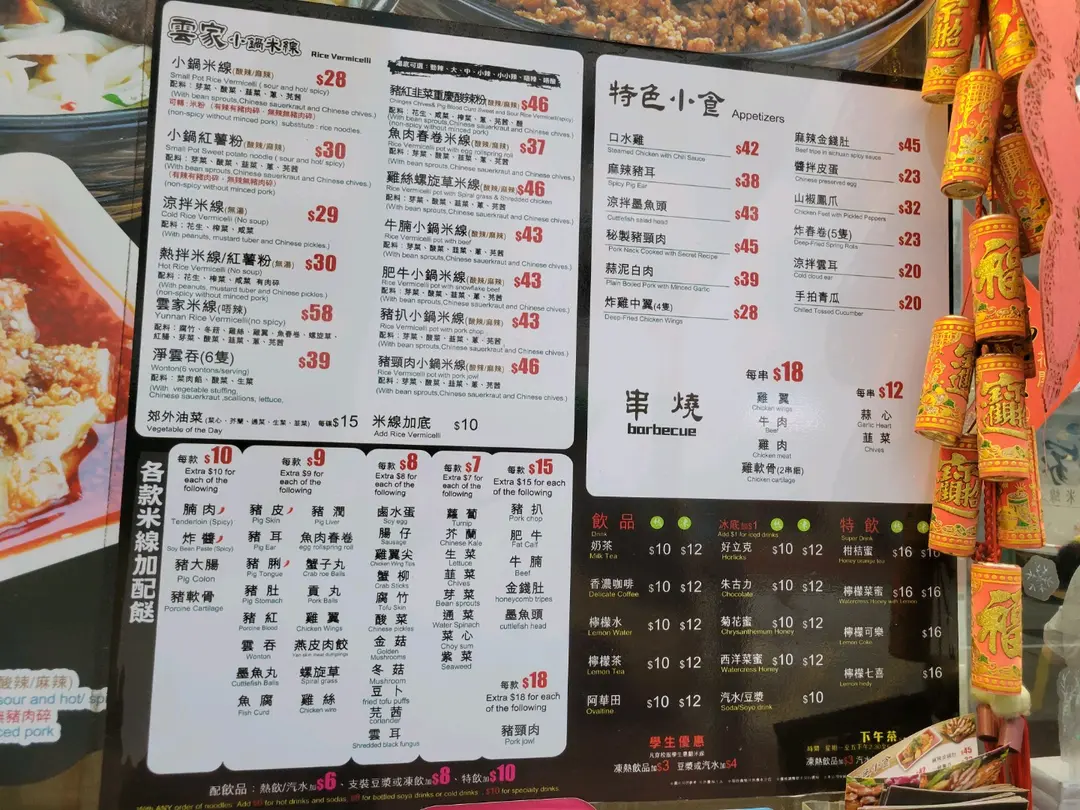 雲家小鍋米線 Rice Vermicelli
小鍋米線(酸辣/麻辣) $28
Small Pot Rice Vermicelli ( sour and hot/ spicy)
配料：芽菜、酸菜、韮菜、蔥、芫茜
(With bean sprouts,Chinese sauerkraut and Chinese chives.)
可轉：米粉 (有辣有豬肉碎，無辣無豬肉碎)
(non-spicy without minced pork) substitute : rice noodles.
小鍋紅薯粉(酸辣/麻辣) $30
Small Pot Sweet potato noodle ( sour and hot/ spicy)
配料：芽菜、酸菜、韮菜、蔥、芫茜
(With bean sprouts,Chinese sauerkraut and Chinese chives.)
(有辣有豬肉碎，無辣無豬肉碎)
(non-spicy without minced pork)
涼拌米線(無湯) $29
Cold Rice Vermicelli (No soup)
配料：花生、榨菜、咸菜
(With peanuts, mustard tuber and Chinese pickles.)
熱拌米線/紅薯粉(無湯) $30
Hot Rice Vermicelli (No soup)
配料：花生、榨菜、咸菜 有肉碎
(With peanuts, mustard tuber and Chinese pickles.)
(non-spicy without minced pork)
雲家米線(唔辣) $58
Yunnan Rice Vermicelli(no spicy)
配料：腐竹、冬菇、雞絲、雞翼、魚春卷、螺旋草、
紅腸、芽菜、酸菜、韮菜、蔥、芫茜
淨雲吞(6隻) $39
Wonton(6 wontons/serving)
配料：菜肉餡、酸菜、生菜
(With vegetable stuffing,
Chinese sauerkraut ,scallions, lettuce,
郊外油菜(菜心、芥蘭、通菜、生菜、韮菜) 每碟$15
Vegetable of the Day
米線加底 $10
Add Rice Vermicelli
豬紅韭菜重慶酸辣粉(酸辣/麻辣) $46
配料：花生、咸菜、榨菜、蔥、芫茜、醋
(With bean sprouts,Chinese sauerkraut and Chinese chives.)
(non-spicy without minced pork)
魚肉春卷米線(酸辣/麻辣) $37
Rice Vermicelli pot with egg rollspring roll
配料：芽菜、酸菜、韮菜、蔥、芫茜
(With bean sprouts,Chinese sauerkraut and Chinese chives.)
雞絲螺旋草米線(酸辣/麻辣) $46
Rice Vermicelli pot with Spiral grass & Shredded chicken
配料：芽菜、酸菜、韮菜、蔥、芫茜
(With bean sprouts,Chinese sauerkraut and Chinese chives.)
牛腩小鍋米線(酸辣/麻辣) $43
Rice Vermicelli pot with beef
配料：芽菜、酸菜、韮菜、蔥、芫茜
(With bean sprouts,Chinese sauerkraut and Chinese chives.)
肥牛小鍋米線(酸辣/麻辣) $43
Rice Vermicelli pot with snowflake beef
配料：芽菜、酸菜、韮菜、蔥、芫茜
(With bean sprouts,Chinese sauerkraut and Chinese chives.)
豬扒小鍋米線(酸辣/麻辣) $43
Rice Vermicelli pot with pork chop
配料：芽菜、酸菜、韮菜、蔥、芫茜
(With bean sprouts,Chinese sauerkraut and Chinese chives.)
豬頸肉小鍋米線(酸辣/麻辣) $46
Rice Vermicelli pot with pork jowl
配料：芽菜、酸菜、韮菜、蔥、芫茜
(With bean sprouts,Chinese sauerkraut and Chinese chives.)
特色小食 Appetizers
口水雞 $42
Steamed Chicken with Chili Sauce
麻辣豬耳 $38
Spicy Pig Ear
涼拌墨魚頭 $43
Cuttlefish salad head
秘製豬頸肉 $45
Pork Neck Cooked with Secret Recipe
蒜泥白肉 $39
Plain Boiled Pork with Minced Garlic
炸雞中翼(4隻) $28
Deep-Fried Chicken Wings
麻辣金錢肚 $45
Beef trips in sichuan spicy sauces
醬拌皮蛋 $23
Chinese preserved egg
山椒鳳爪 $32
Chicken Feet with Pickled Peppers
炸春卷(5隻) $23
Deep-Fried Spring Rolls
涼拌雲耳 $20
Cold cloud ear
手拍青瓜 $20
Chilled Tossed Cucumber
串燒
barbecue
每串 $18
雞翼
Chicken wings
牛肉
Beef
雞肉
Chicken meat
雞軟骨(2串起)
Chicken cartilage
每串 $12
蒜心
Garlic Heart
韮菜
Chives
各款米線加配餸
每款 $10
Extra $10 for
each of the
following
腩肉
Tenderloin (Spicy)
炸醬
Soy Bean Paste (Spicy)
豬大腸
Pig Colon
豬軟骨
Porcine Cartilage
每款 $9
Extra $9 for
each of the
following
豬皮
Pig Skin
豬耳
Pig Ear
豬脷
Pig Tongue
豬肚
Pig Stomach
豬紅
Porcine Blood
雲吞
Wonton
墨魚丸
Cuttlefish Balls
魚腐
Fish Curd
豬潤
Pig Liver
魚肉春卷
egg rollspring roll
蟹子丸
Crab roe Balls
貢丸
Pork Balls
雞翼
Chicken Wings
燕皮肉餃
螺旋草
Spiral grass
雞絲
Chicken wire
每款 $8
Extra $8 for
each of the
following
鹵水蛋
Soy egg
腸仔
Sausage
雞翼尖
Chicken Wing Tips
蟹柳
Crab Sticks
腐竹
Tofu Skin
酸菜
Chinese pickles
金菇
Golden
Mushrooms
冬菇
Mushroom
豆卜
fried tofu puffs
芫茜
coriander
雲耳
Shredded black fungus
每款 $7
Extra $7 for
each of the
following
蘿蔔
Turnip
芥蘭
Chinese Kale
生菜
Lettuce
韮菜
Chives
芽菜
Bean sprouts
通菜
Water Spinach
菜心
Choy sum
紫菜
Seaweed
每款 $15
Extra $15 for each
of the following
豬扒
Pork chop
肥牛
Fat Calf
牛腩
Beef
金錢肚
honeycomb tripes
墨魚頭
cuttlefish head
每款 $18
Extra $18 for each
of the following
豬頸肉
Pork jowl
飲品 熱 凍
Drink
奶茶 $10 $12
Milk Tea
香濃咖啡 $10 $12
Delicate Coffee
檸檬水 $10 $12
Lemon Water
檸檬茶 $10 $12
Lemon Tea
阿華田 $10 $12
Ovaltine
冰底加$1 熱 凍
Add $1 for iced drinks
好立克 $10 $12
Horlicks
朱古力 $10 $12
Chocolate
菊花蜜 $10 $12
Chrysanthemum Honey
西洋菜蜜 $10 $12
Watercress Honey
汽水/豆漿 $10
Soda/Soyo drink
特飲 熱 凍
Super Drink
柑桔蜜 $16
Honey orange tea
檸檬菜蜜 $16 $16
Watercress Honey with Lemon
檸檬可樂 $16
Lemon Coke
檸檬七喜 $16
學生優惠
凍熱飲品加$3 豆漿或汽水$4
下午茶
凍熱飲品加$3
配飲品：熱飲/汽水加$6、支裝豆漿或凍飲加$8、特飲加$10
With ANY order of noodles. Add $6 for hot drinks and sodas, $8 for bottled soya drinks or cold drinks , $10 for specialty drinks.
酸辣/麻辣)
sour and hot/ sp
無豬肉碎
ced pork
福
招
$45